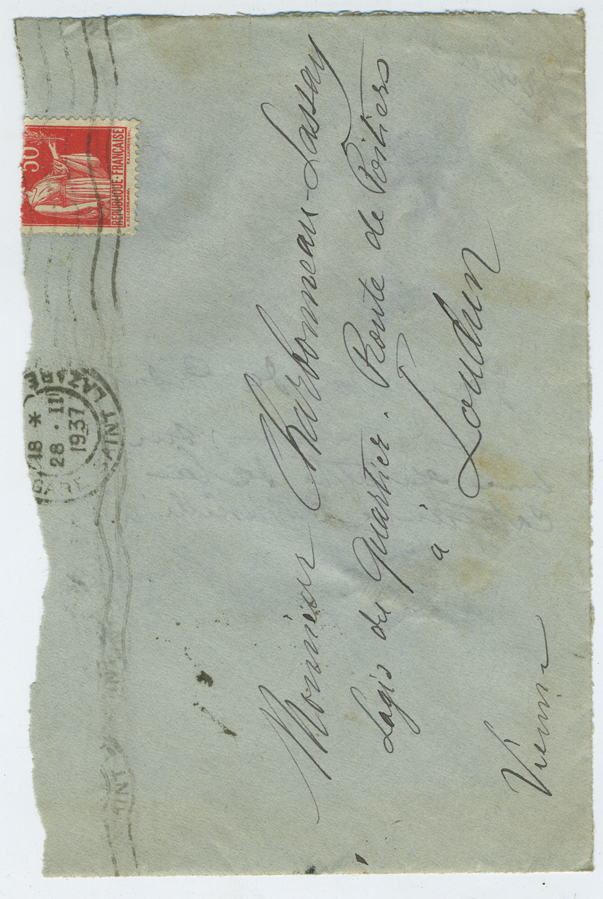 50
REPUBLIQUE-FRANCAISE
SAINT LAZARE
18 *
28 . II
1937
Monsieur Charbonneau-Lassay
Logis du Quartier. Route de Poitiers
à
Loudun
Vienne